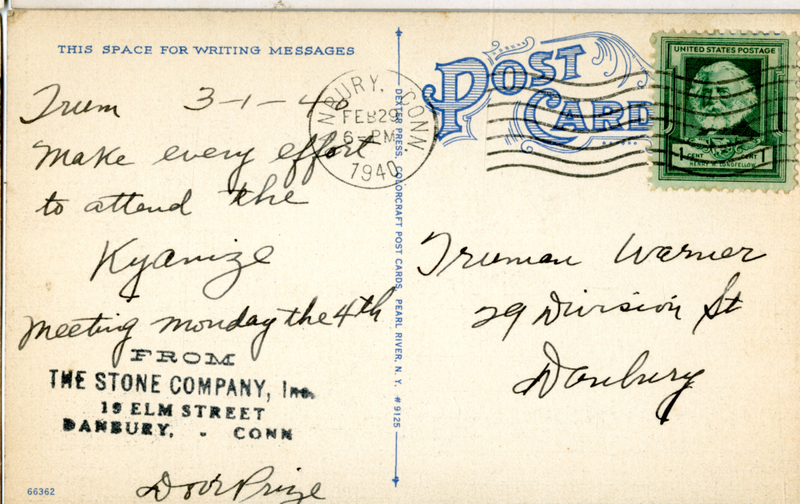 THIS SPACE FOR WRITING MESSAGES
Trum 3-1-40
Make every effort
to attend the
Kyanize
meeting monday the 4th
FROM
THE STONE COMPANY, Inc.
19 ELM STREET
DANBURY, - CONN
Door Prize
66362
DEXTER PRESS, COLORCRAFT POST CARDS, PEARL RIVER, N. Y. #9125
POST
CARD
NBURY, CONN.
FEB 29
6-PM
1940
UNITED STATES POSTAGE
1 CENT CENT 1
HENRY W. LONGFELLOW
Truman Warner
29 Division St
Danbury